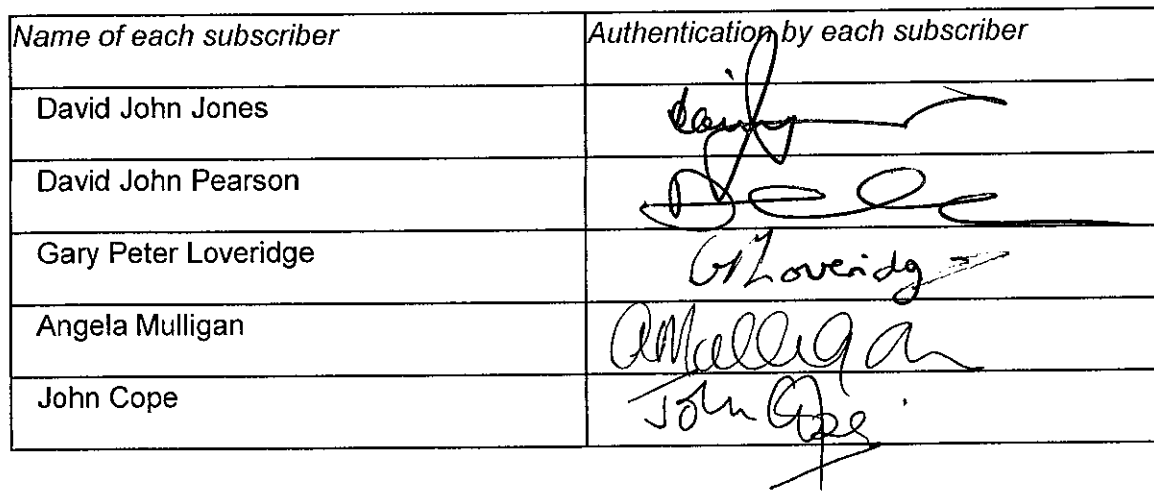 Name of each subscriber Authentication by each subscriber
David John Jones
David John Pearson
Gary Peter Loveridge GPLoveridge
Angela Mulligan AMulligan
John Cope John Cope